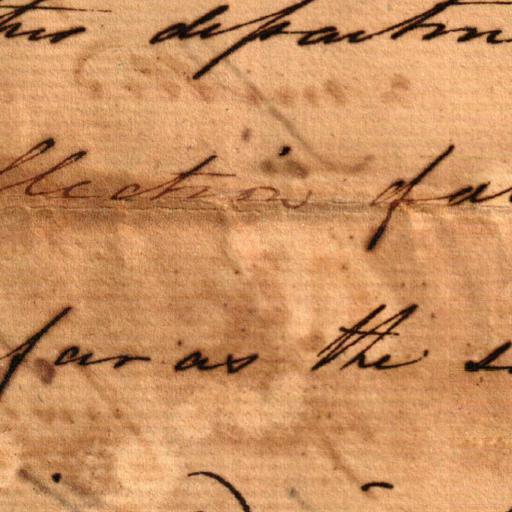 this departm
llections of a
far as the s